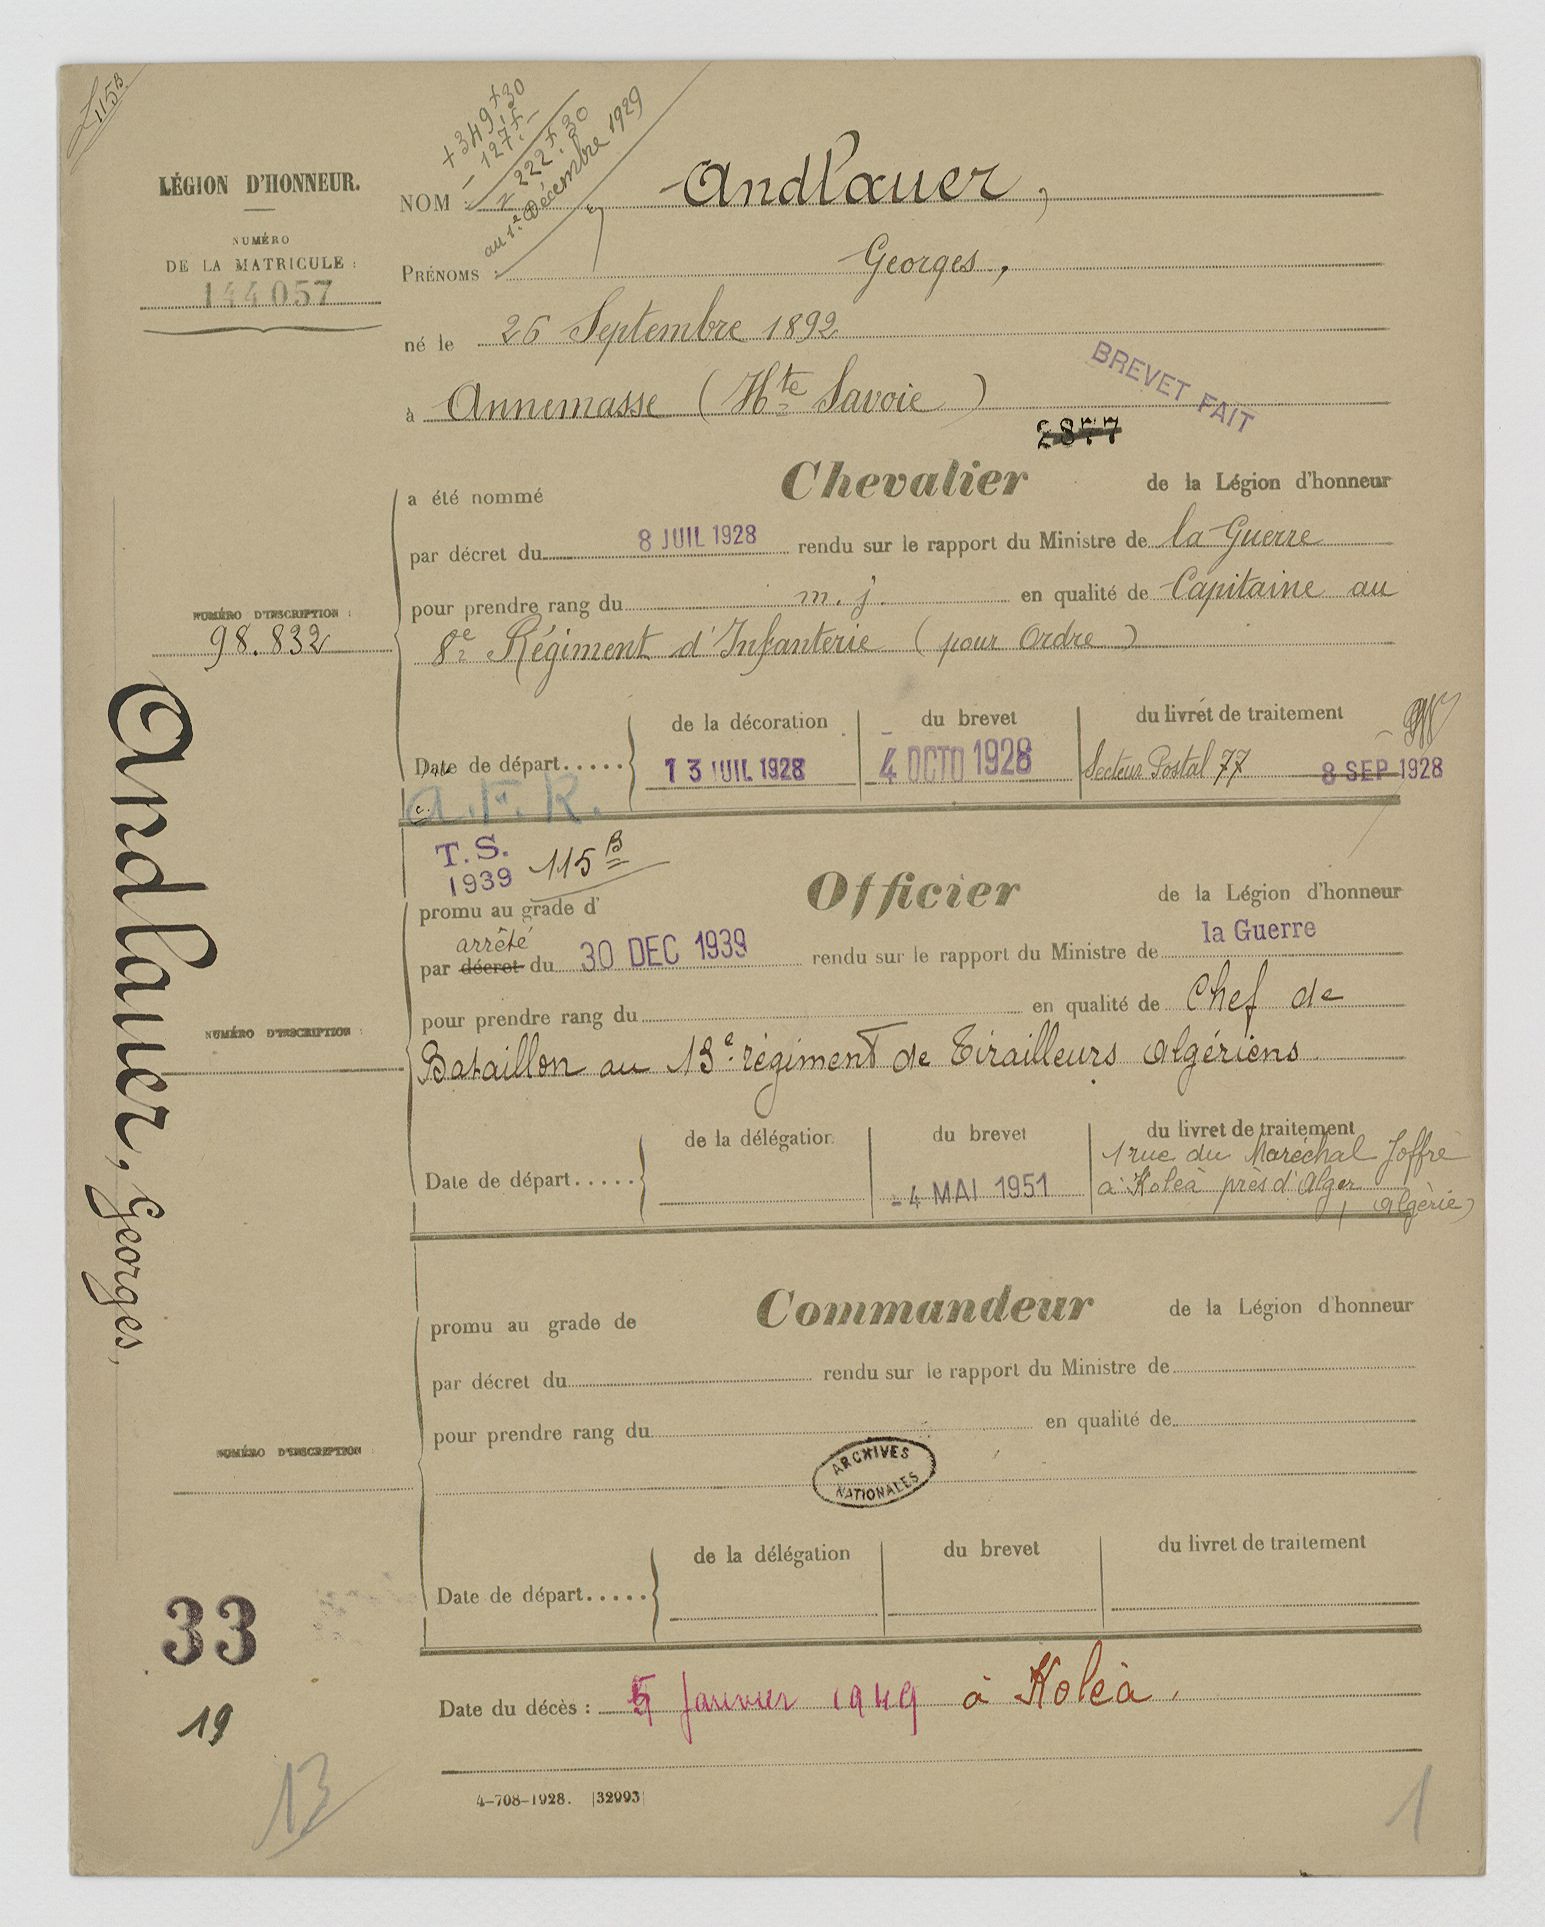 L115B
+ 349f,30
- 127f,-
222f,30
au 1er Décembre 1929
LÉGION D'HONNEUR.
NUMÉRO
DE LA MATRICULE :
144057
NOM : Andlauer,
PRÉNOMS : Georges,
né le 26 Septembre 1892
à Annemasse (Hte Savoie)
BREVET FAIT
2877
a été nommé Chevalier de la Légion d'honneur
par décret du 8 JUIL 1928 rendu sur le rapport du Ministre de la Guerre
pour prendre rang du m. j. en qualité de Capitaine au
NUMÉRO D'INSCRIPTION :
98.832
8e Régiment d'Infanterie (pour Ordre)
de la décoration du brevet du livret de traitement
Date de départ..... 13 JUIL 1928 4 OCTO 1928 Secteur Postal 77 8 SEP 1928
A.F.R.
T.S.
1939 115 B
promu au grade d' Officier de la Légion d'honneur
arrêté
par décret du 30 DEC 1939 rendu sur le rapport du Ministre de la Guerre
pour prendre rang du en qualité de Chef de
NUMÉRO D'INSCRIPTION :
Bataillon au 13e régiment de Tirailleurs Algériens
de la délégation du brevet du livret de traitement
1 rue du Maréchal Joffre
Date de départ..... - 4 MAI 1951 à Koléa près d'Alger
Algérie)
Andlauer, Georges,
promu au grade de Commandeur de la Légion d'honneur
par décret du rendu sur le rapport du Ministre de
pour prendre rang du en qualité de
NUMÉRO D'INSCRIPTION :
ARCHIVES
NATIONALES
de la délégation du brevet du livret de traitement
Date de départ.....
33
19
13
Date du décès : 5 Janvier 1949 à Koléa.
4-708-1928. [32993]
1